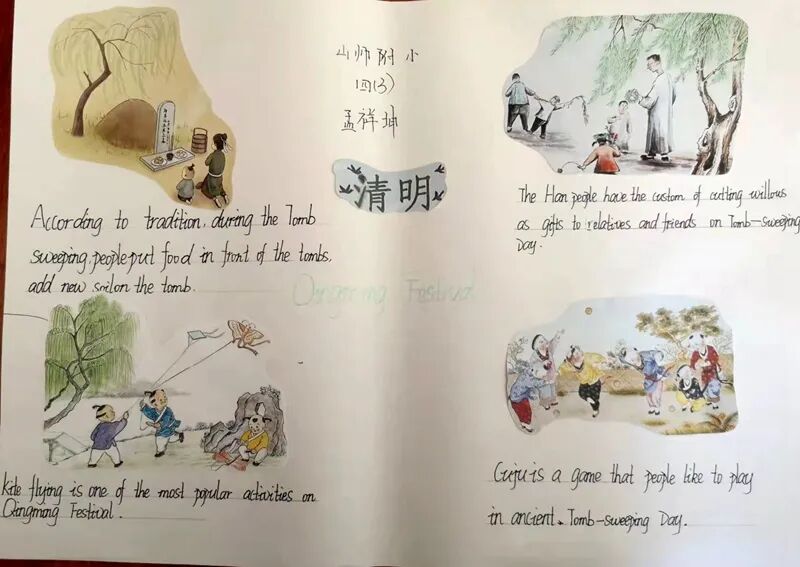 山师附小
四(3)
孟祥坤
清明
According to tradition, during the Tomb
sweeping, people put food in front of the tombs,
add new soil on the tomb.
The Han people have the custom of cutting willows
as gifts to relatives and friends on Tomb-sweeping
Day.
Qingming Festival
Kite flying is one of the most popular activities on
Qingming Festival.
Cuju is a game that people like to play
in ancient Tomb-sweeping Day.